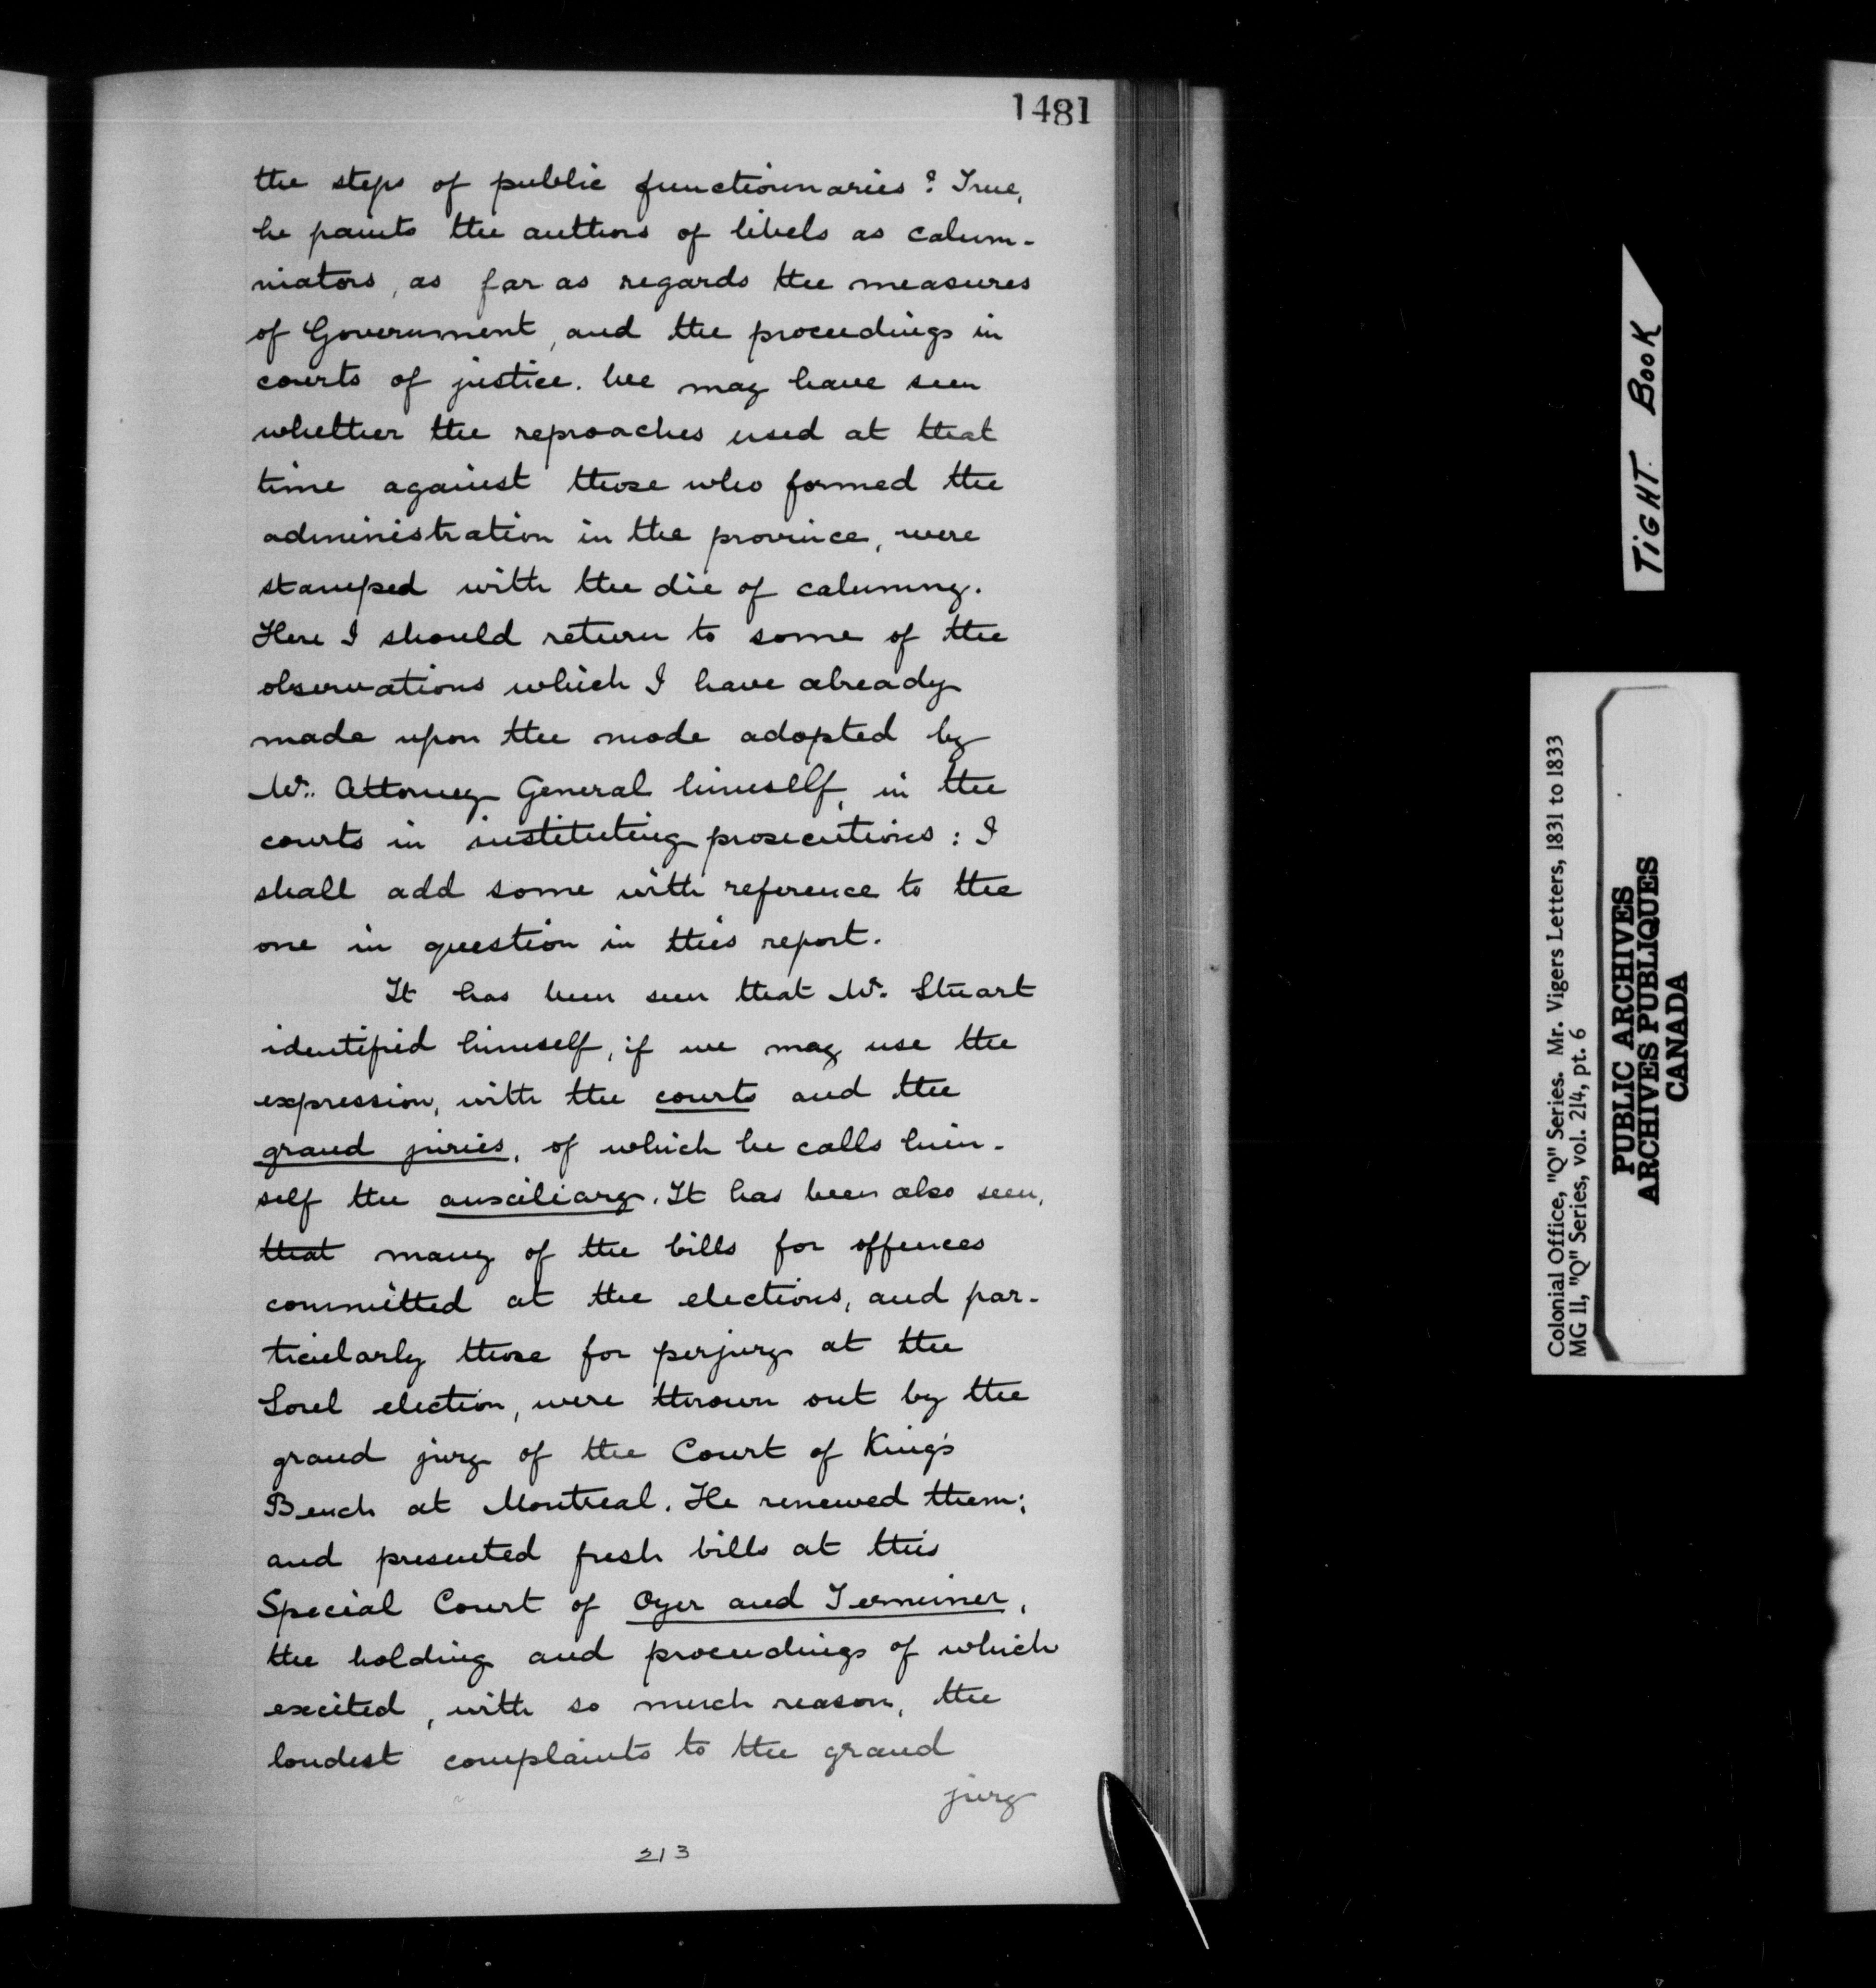 1481
the steps of public functionnaries? True,
he paints the authors of libels as calum-
niators, as far as regards the measures
of Government, and the proceedings in
courts of justice. We may have seen
whether the reproaches used at that
time against those who formed the
administration in the province, were
stamped with the die of calumny.
Here I should return to some of the
observations which I have already
made upon the mode adopted by
Mr. Attorney General himself, in the
courts in instituting prosecutions: I
shall add some with reference to the
one in question in this report.
It has been seen that Mr. Stuart
identified himself, if we may use the
expression, with the courts and the
grand juries, of which he calls him-
self the auxiliary. It has been also seen,
that many of the bills for offences
committed at the elections, and par-
ticularly those for perjury at the
Sorel election, were thrown out by the
grand jury of the Court of King's
Bench at Montreal. He renewed them;
and presented fresh bills at this
Special Court of Oyer and Terminer,
the holding and proceedings of which
excited, with so much reason, the
loudest complaints to the grand
jury
213
TIGHT BOOK
Colonial Office, "Q" Series. Mr. Vigers Letters, 1831 to 1833
MG 11, "Q" Series, vol. 214, pt. 6
PUBLIC ARCHIVES
ARCHIVES PUBLIQUES
CANADA